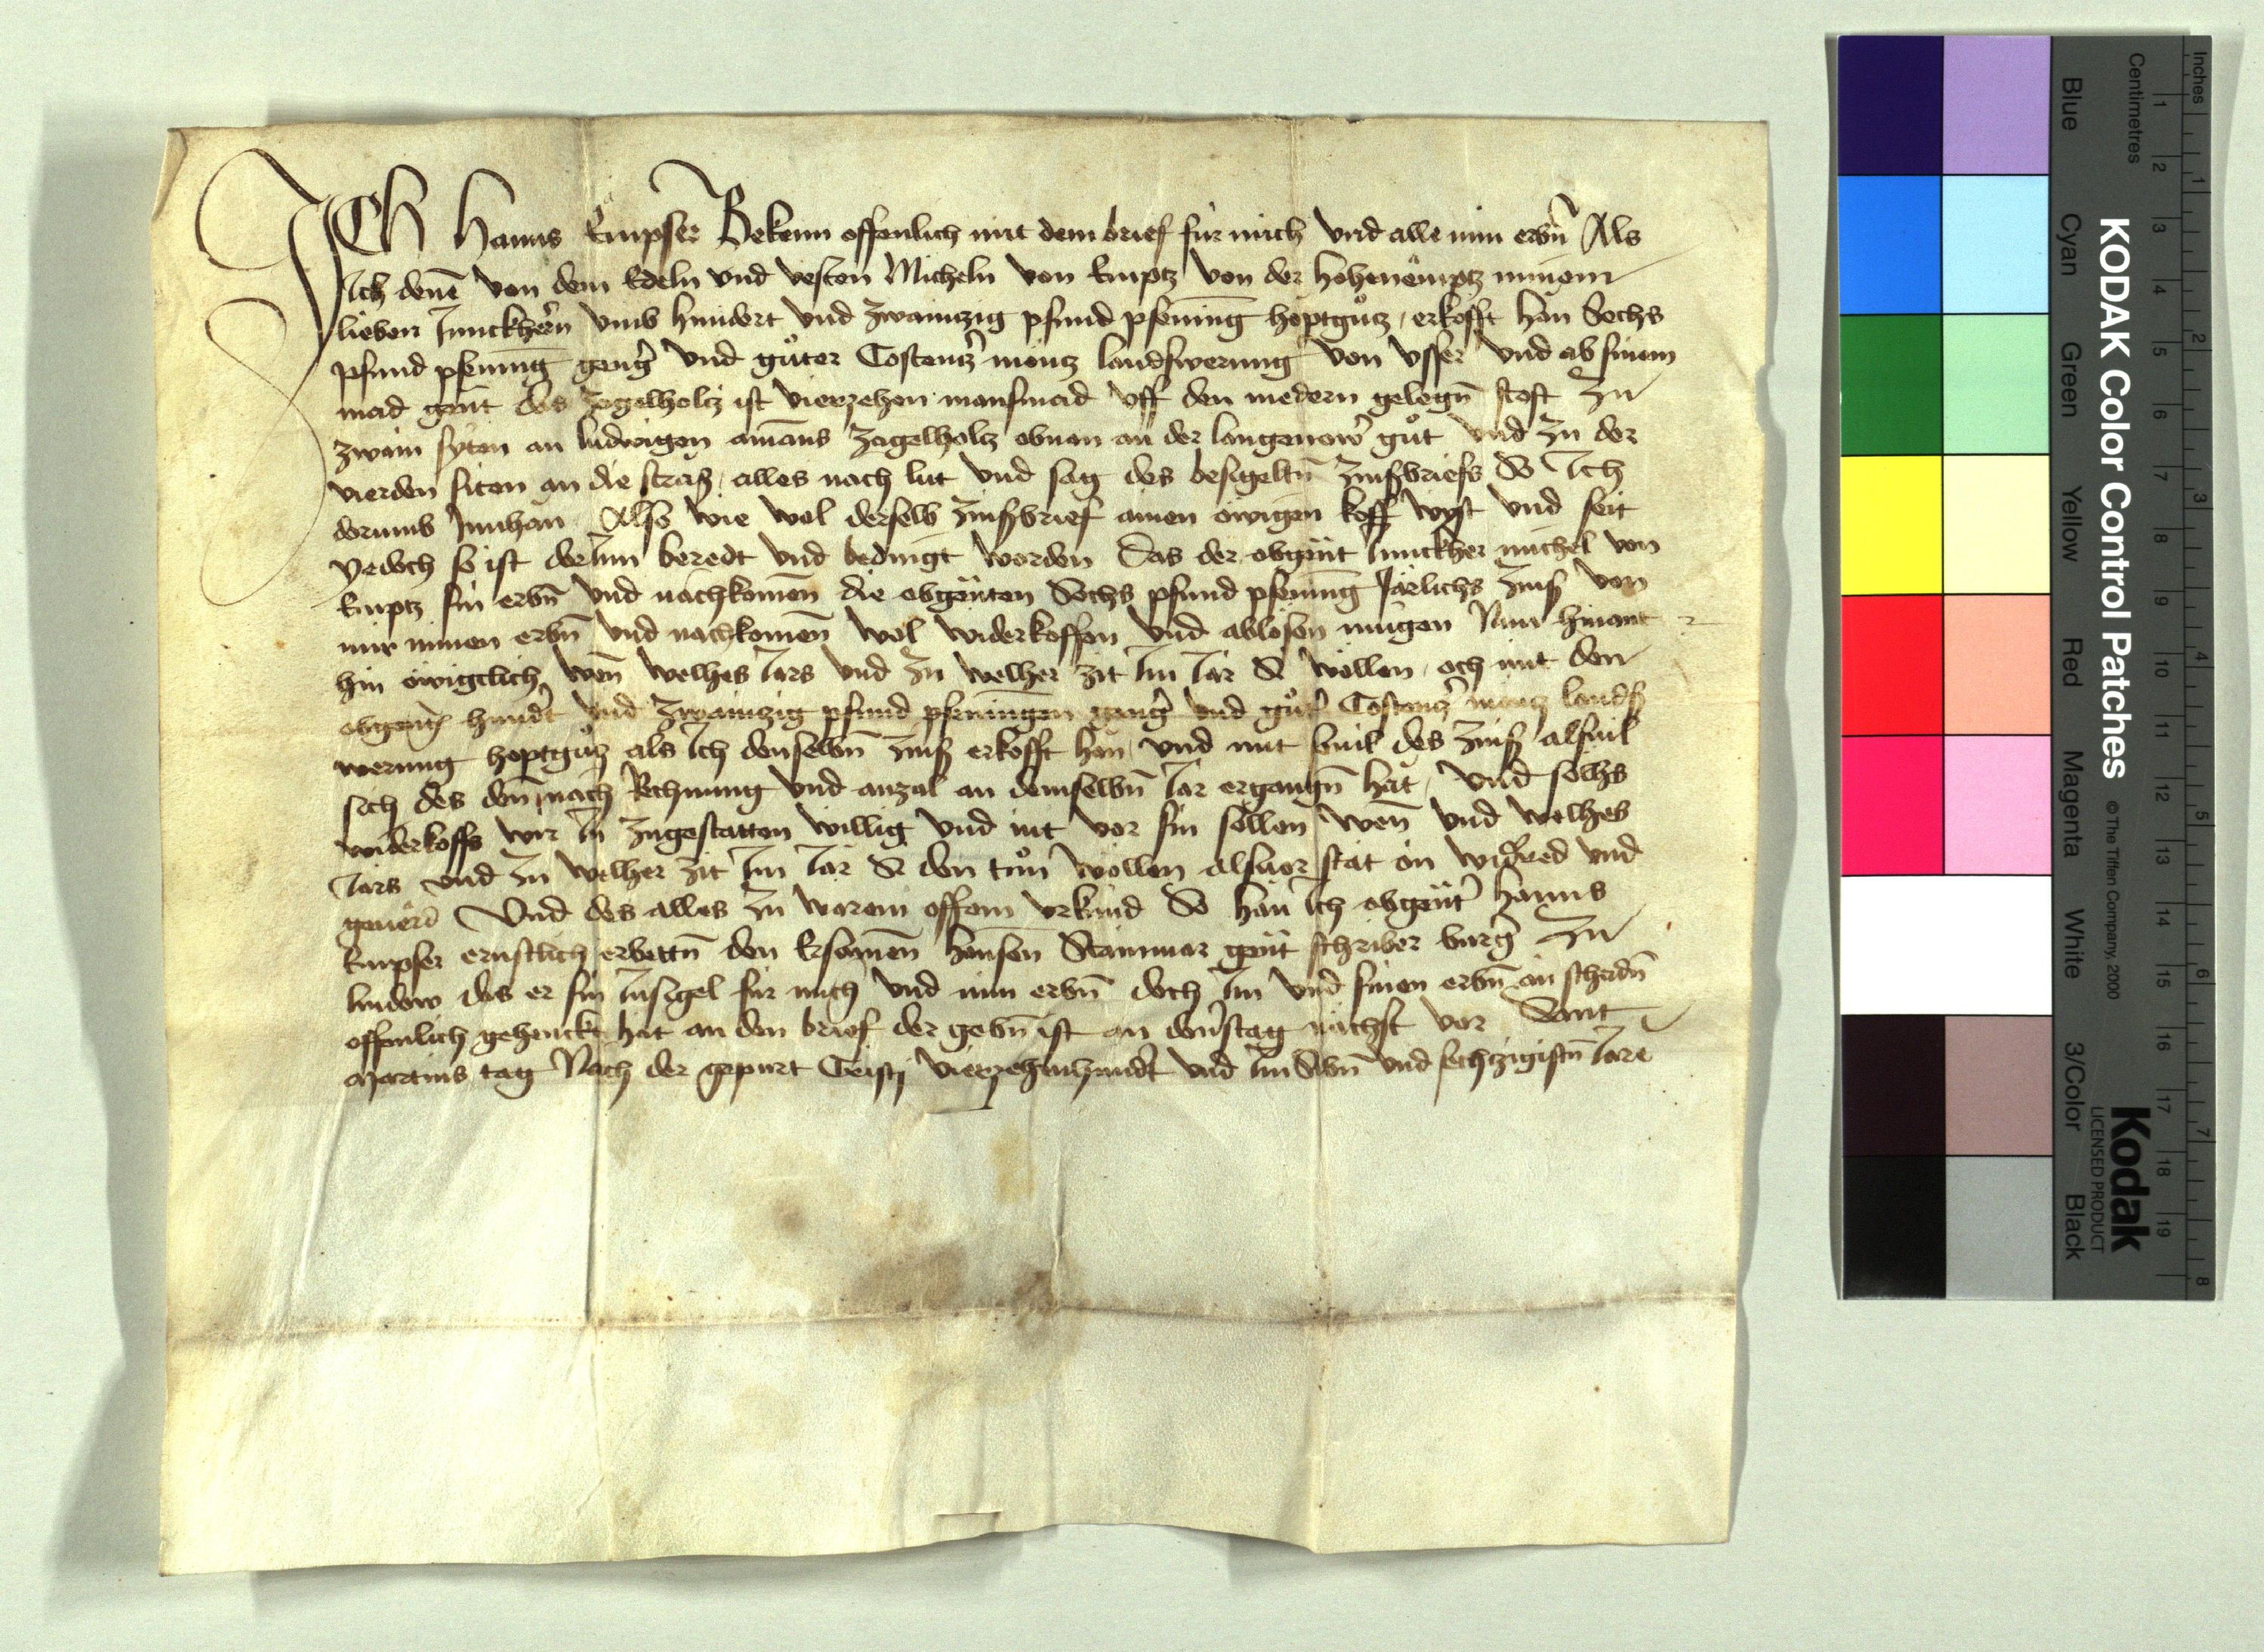 Ich Hanns Empser Bekenn offenlich mit dem brief für mich vnd alle min erbn̄ Als
Ich denn̄ von dem Edeln vnd vesten Micheln von Emptz von der hohenemptz minem
lieben Junckhern̄ vmb hundert vnd zwaintzig pfund pfenning hoptgůtz, erkofft han Sechs
pfund pfenning geng̾ vnd gůter Costentz̾ müntz landswerung von vsser vnd ab sinem
mad gen̄t des zegelholtz ist vierzehen mansmad vff den medern gelegn̄ stost zu
zwain syten an ludwigen amans zagelholtz obnan an der langenow̾ gůt vnd zu der
vierden siten an die straß, alles nach lut vnd sag des besigeltn̄ zinßbriefs So Ich
darumb Innhan Also wie wol derselb zinßbrief ainen öwigen koff wyst vnd seit
yedoch so ist darInn beredt vnd bedingt worden Das der obgen̄t Junckher michel von
Emptz sin erbn̄ vnd nachkomen̄ die obgen̄ten Sechs pfund pfenning Järlichs zinß von
mir minen erbn̄ vnd nachkomen̄ wol widerkoffen vnd ablösen mügen Nun hinant
hin öwigclich wen̄ welhes Jars vnd zu welher zit Im Jar Si wöllen, och mit den
obgen̄t̾ hund̾t vnd zwaintzig pfund pfenningen geng̾ vnd gůt̾ Costentz̾ müntz landß
werung hoptgůtz als Ich denselbn̄ zinß erkofft han, vnd mit souil des zinß alsuil
sich des den̄ nach Rechnung vnd anzal an demselbn̄ Jar ergangn̄ hat, vnd solhs
widerkoffs wir In zugestatten willig vnd nit vor sin söllen wen̄ vnd welhes
Jars vnd zu welher zit Im Jar Si den tůn wöllen alsuor stat ön wid̾red vnd
geuerd Vnd des alles zu warem offem vrkund So han Ich obgen̄t̾ hanns
Empser ernstlich erbettn̄ den Ersamen̄ hansen Stainmar gen̄t schriber burg̾ zu
lindow das er sin Insigel für mich vnd min erbn̄ doch Im vnd sinen erbn̄ ön schadn̄
offenlich gehenckt hat an den brief der gebn̄ ist an don̾stag nächst vor Sant
Martins tag Nach der gepurt Cristj vierzehenhund̾t vnd Im Sibn̄ vnd sechtzigistn̄ Jare
KODAK Color Control Patches
© The Tiffen Company, 2000
Kodak
LICENSED PRODUCT
Inches
Centimetres
1 2 3 4 5 6 7 8 9 10 11 12 13 14 15 16 17 18 19
1 2 3 4 5 6 7 8
Blue
Cyan
Green
Yellow
Red
Magenta
White
3/Color
Black